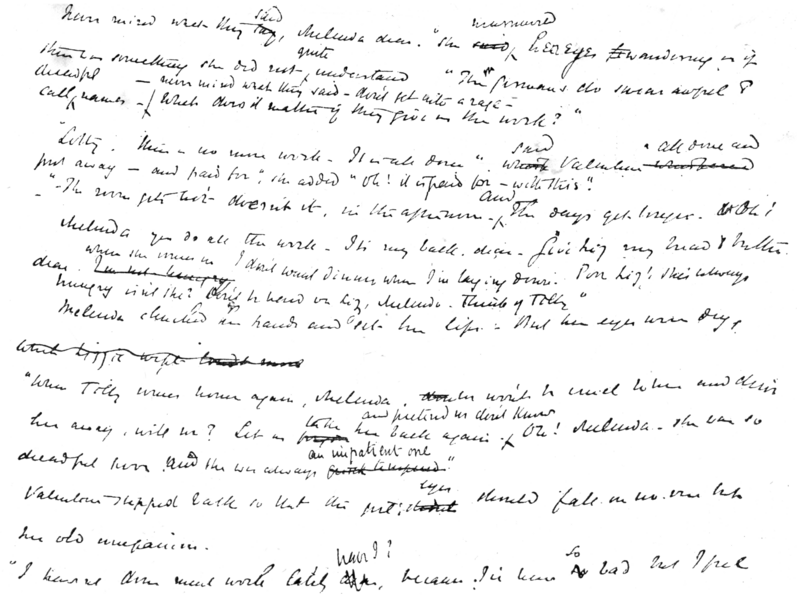 Never mind what they said, Melenda dear." She murmured, her eyes wandering as if
there was something she did not quite understand "The Germans do swear awful &
dreadful — never mind what they said — don't get into a rage —
call names — What does it matter if they give us the work?"
"Lotty. There is no more work — It is all done", said Valentine "all done and
put away — and paid for", she added "Oh! it is paid for — with this".
"The room gets hot doesn't it, in the afternoon — and The days get longer. Oh!
Melenda you do all the work — It's my back, dear — Give Liz my bread & butter
when she comes in I don't want dinner when I'm laying down. Poor Liz! She's always
dear. I'm not hungry
hungry isn't she? Don't be hard on Liz, Melenda — Think of Tilly"
Melenda clenched her hands and set her lips — But her eyes were dry.
while Lizzie wept
"When Tilly comes home again, Melenda, we won't be cruel to her and drive
her away, will we? Let us take her back again and pretend we don't know. Oh! Melenda — she was so
dreadful and she was always an impatient one"
Valentine stepped back so that the girl's eyes should fall on no one but
her old companion.
"I haven't done much work lately have I? because I've been so bad but I feel